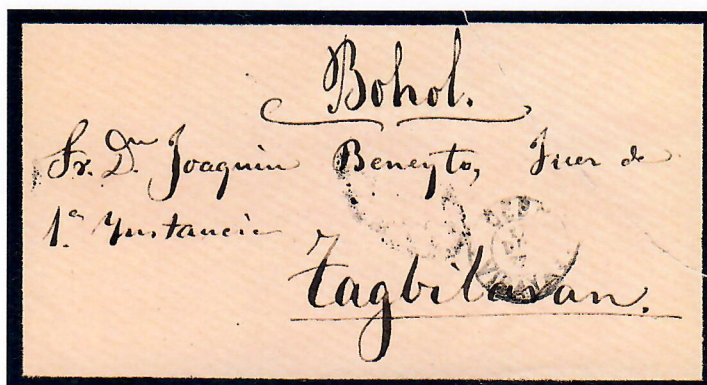 Bohol.
Sr. Dn Joaquin Beneyto, Juez de
1.a Ynstancia
Tagbilaran.